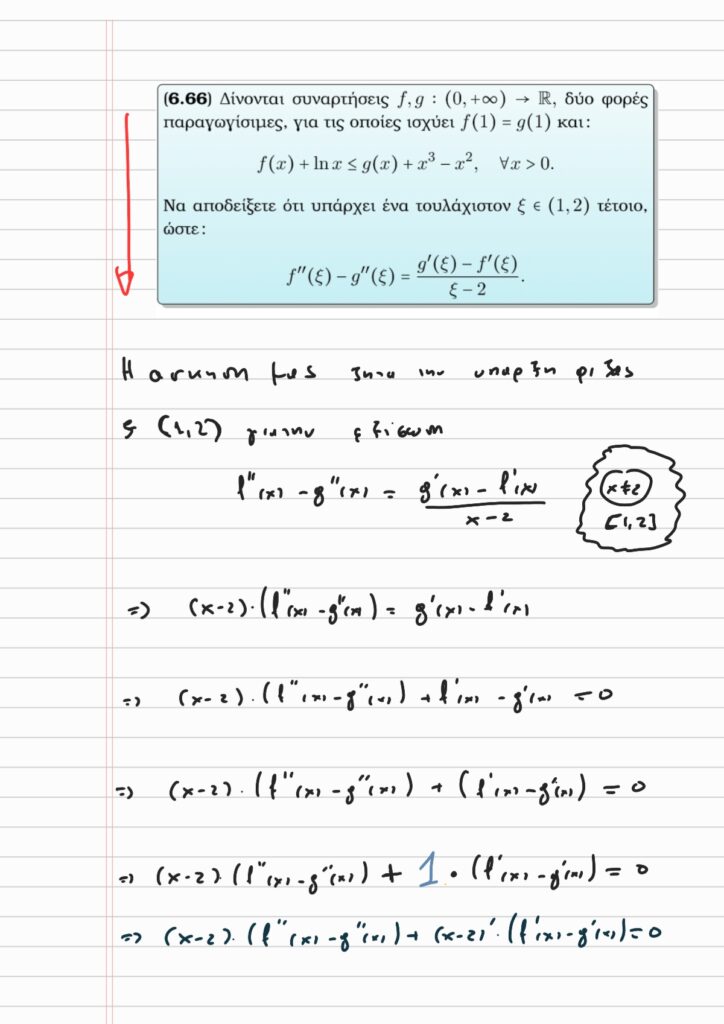 (6.66) Δίνονται συναρτήσεις f, g : (0, +∞) → ℝ, δύο φορές
παραγωγίσιμες, για τις οποίες ισχύει f(1) = g(1) και:
f(x) + ln x ≤ g(x) + x³ − x², ∀x > 0.
Να αποδείξετε ότι υπάρχει ένα τουλάχιστον ξ ∈ (1, 2) τέτοιο,
ώστε:
f''(ξ) − g''(ξ) = (g'(ξ) − f'(ξ)) / (ξ − 2).
Η ασκηση μας ζητα την υπαρξη ριζας
(1,2) για την εξισωση
f''(x) - g''(x) = (g'(x) - f'(x)) / (x-2)
x≠2
[1,2]
=> (x-2)·(f''(x) - g''(x)) = g'(x) - f'(x)
=> (x-2)·(f''(x) - g''(x)) + f'(x) - g'(x) = 0
=> (x-2)·(f''(x) - g''(x)) + (f'(x) - g'(x)) = 0
=> (x-2)·(f''(x) - g''(x)) + 1·(f'(x) - g'(x)) = 0
=> (x-2)·(f''(x) - g''(x)) + (x-2)'·(f'(x) - g'(x)) = 0